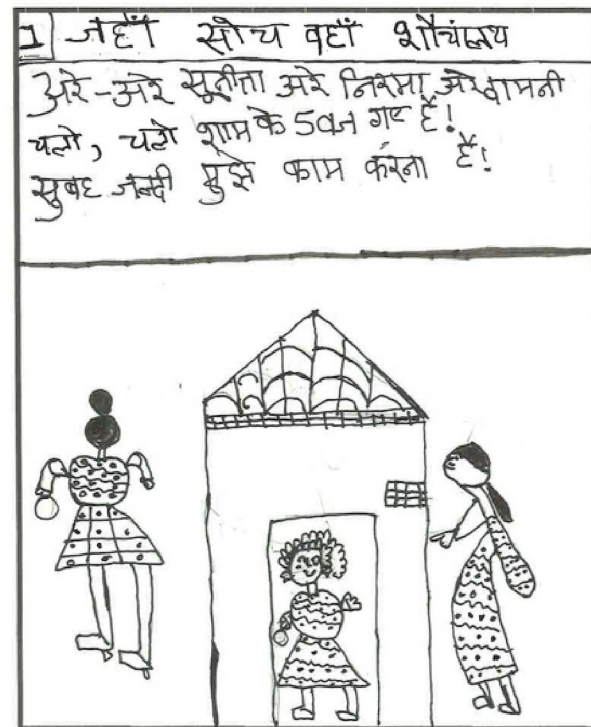 1 जहाँ सोच वहाँ शौचालय
अरे-अरे सुनीता अरे निरमा अरे कामनी
चलो, चलो शाम के 5 बज गए हैं!
सुबह जल्दी मुझे काम करना है!